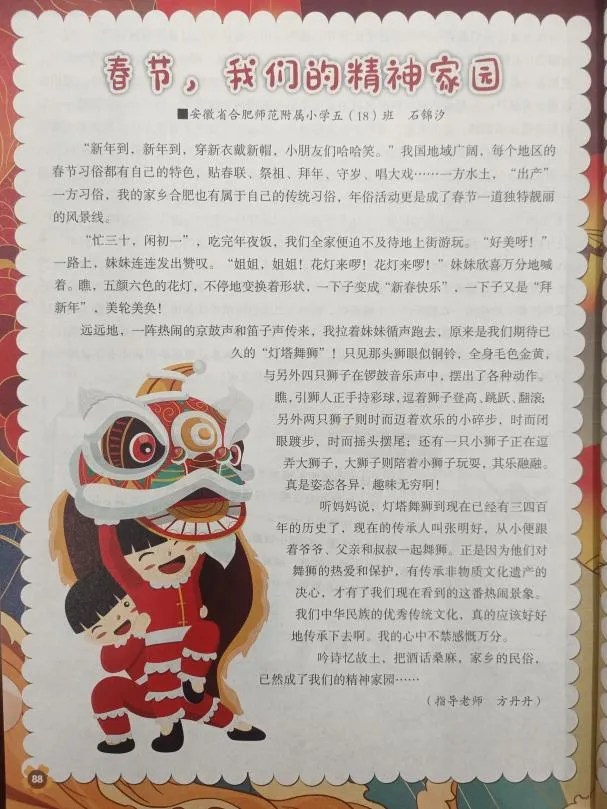 春节，我们的精神家园
■安徽省合肥师范附属小学五（18）班　石锦汐
“新年到，新年到，穿新衣戴新帽，小朋友们哈哈笑。”我国地域广阔，每个地区的
春节习俗都有自己的特色，贴春联、祭祖、拜年、守岁、唱大戏……一方水土，“出产”
一方习俗，我的家乡合肥也有属于自己的传统习俗，年俗活动更是成了春节一道独特靓丽
的风景线。
“忙三十，闲初一”，吃完年夜饭，我们全家便迫不及待地上街游玩。“好美呀！”
一路上，妹妹连连发出赞叹。“姐姐，姐姐！花灯来啰！花灯来啰！”妹妹欣喜万分地喊
着。瞧，五颜六色的花灯，不停地变换着形状，一下子变成“新春快乐”，一下子又是“拜
新年”，美轮美奂！
远远地，一阵热闹的京鼓声和笛子声传来，我拉着妹妹循声跑去，原来是我们期待已
久的“灯塔舞狮”！只见那头狮眼似铜铃，全身毛色金黄，
与另外四只狮子在锣鼓音乐声中，摆出了各种动作。
瞧，引狮人正手持彩球，逗着狮子登高、跳跃、翻滚；
另外两只狮子则时而迈着欢乐的小碎步，时而闭
眼踱步，时而摇头摆尾；还有一只小狮子正在逗
弄大狮子，大狮子则陪着小狮子玩耍，其乐融融。
真是姿态各异，趣味无穷啊！
听妈妈说，灯塔舞狮到现在已经有三四百
年的历史了，现在的传承人叫张明好，从小便跟
着爷爷、父亲和叔叔一起舞狮。正是因为他们对
舞狮的热爱和保护，有传承非物质文化遗产的
决心，才有了我们现在看到的这番热闹景象。
我们中华民族的优秀传统文化，真的应该好好
地传承下去啊。我的心中不禁感慨万分。
吟诗忆故土，把酒话桑麻，家乡的民俗，
已然成了我们的精神家园……
（指导老师　方丹丹）
88